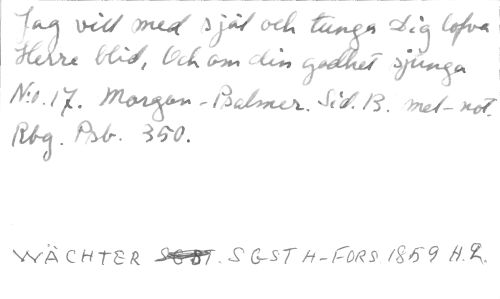 Jag vill med själ och tunga Dig lofva
Herre blid, Och om din godhet sjunga
N:o. 17. Morgon-Psalmer. Sid. 13. met-not.
Rbg. Psb. 350.
WÄCHTER SGST H-FORS 1859 H.L.